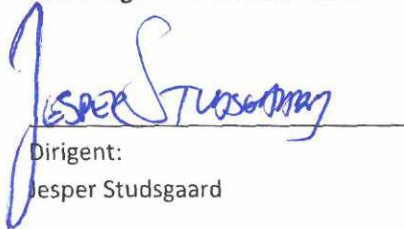 JESPER STUDSGAARD
Dirigent:
Jesper Studsgaard